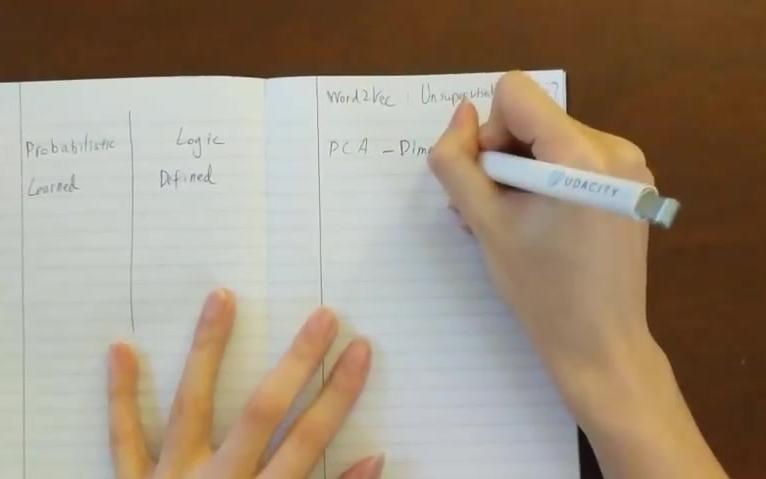 Probabilistic Logic
Learned Defined
Word2Vec : Unsupervised
PCA - Dime
UDACITY